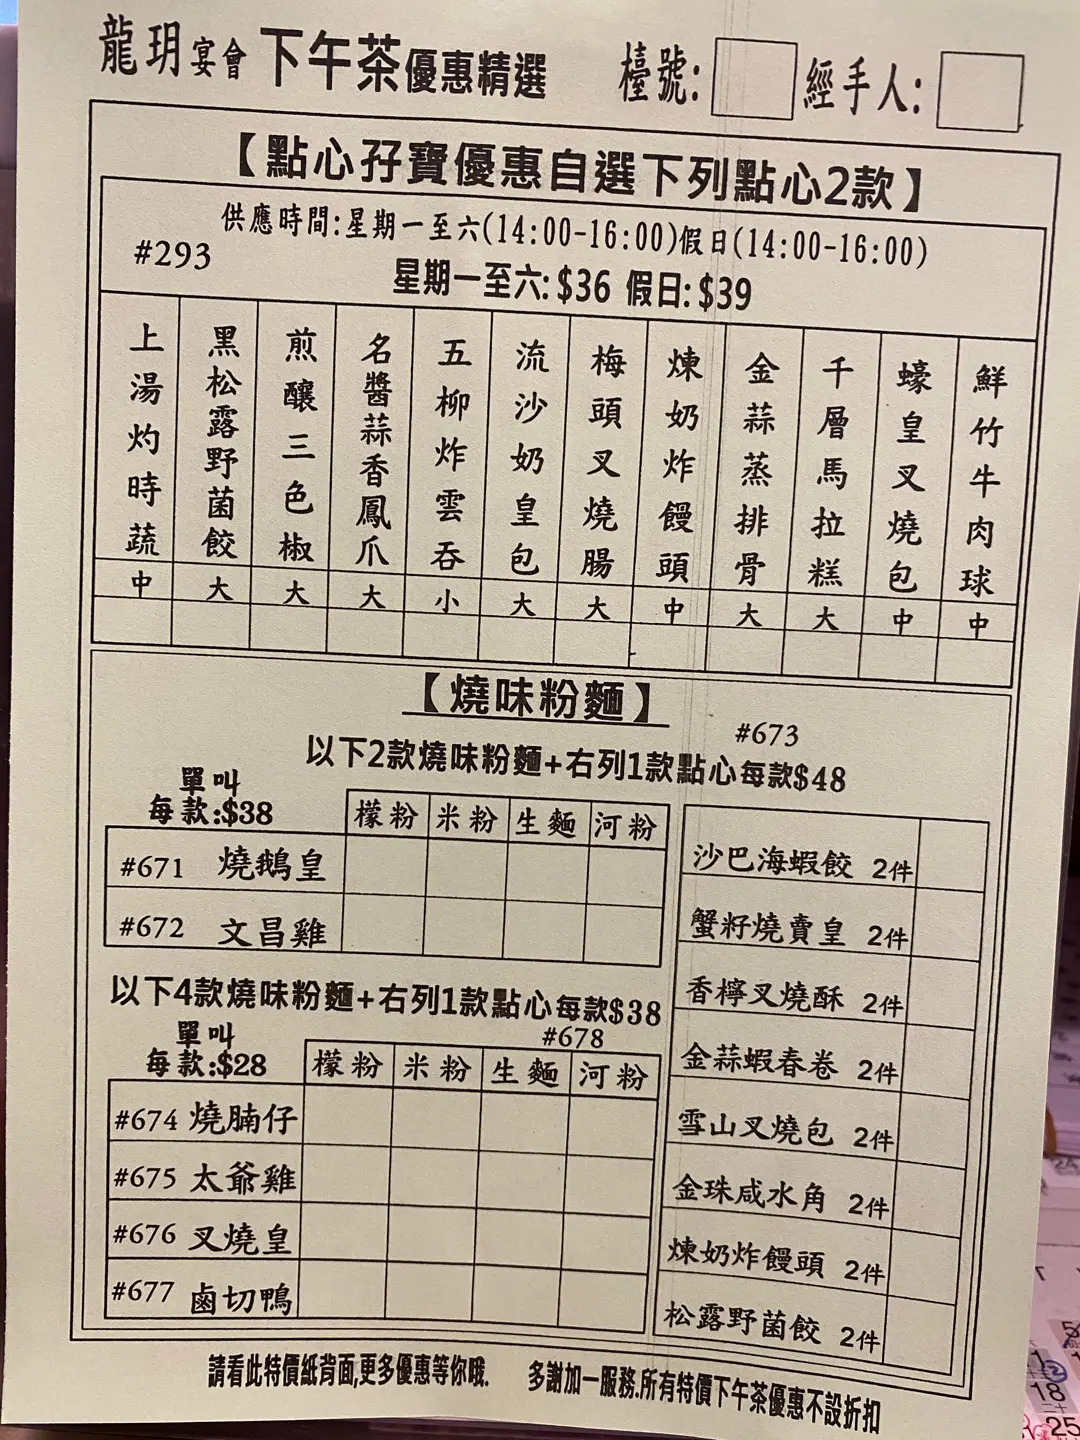 龍玥宴會 下午茶優惠精選 檯號: 經手人:
【點心孖寶優惠自選下列點心2款】
供應時間:星期一至六(14:00-16:00)假日(14:00-16:00)
#293
星期一至六:$36 假日:$39
上湯灼時蔬 中
黑松露野菌餃 大
煎釀三色椒 大
名醬蒜香鳳爪 大
五柳炸雲吞 小
流沙奶皇包 大
梅頭叉燒腸 大
煉奶炸饅頭 中
金蒜蒸排骨 大
千層馬拉糕 大
蠔皇叉燒包 中
鮮竹牛肉球 中
【燒味粉麵】
#673
以下2款燒味粉麵+右列1款點心每款$48
單叫
每款:$38
檬粉 米粉 生麵 河粉
#671 燒鵝皇
#672 文昌雞
以下4款燒味粉麵+右列1款點心每款$38
#678
單叫
每款:$28
檬粉 米粉 生麵 河粉
#674 燒腩仔
#675 太爺雞
#676 叉燒皇
#677 鹵切鴨
沙巴海蝦餃 2件
蟹籽燒賣皇 2件
香檸叉燒酥 2件
金蒜蝦春卷 2件
雪山叉燒包 2件
金珠咸水角 2件
煉奶炸饅頭 2件
松露野菌餃 2件
請看此特價紙背面,更多優惠等你哦. 多謝加一服務.所有特價下午茶優惠不設折扣
18
25